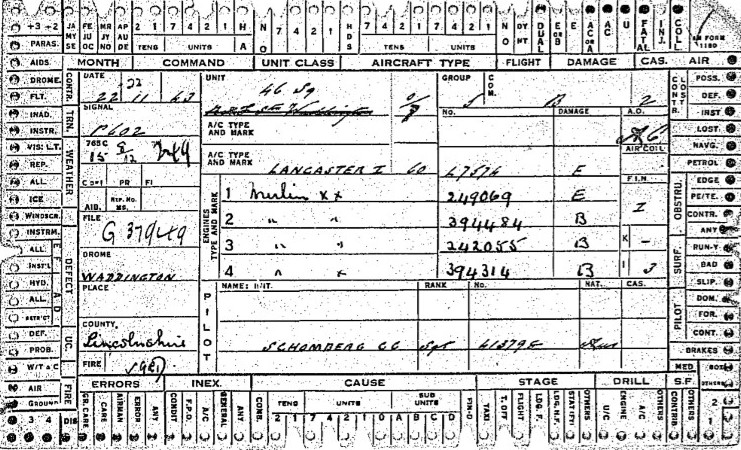 +3 +2 JA MY SE FE JU OC MR JY NO AP AU DE 2 1 7 4 2 1 H A N O 7 4 2 1 H D S 7 4 2 1 7 4 2 1 N O DY NT DUAL E OR B E AC OR A AC U FATAL INJ. COLL.
TENS UNITS TENS UNITS FORM 1180
PARAS. MONTH COMMAND UNIT CLASS AIRCRAFT TYPE FLIGHT DAMAGE CAS. AIR
AIDS. CONTR. DATE 22 UNIT 46 Sq GROUP COM. CONTR. CLOST POSS.
DROME. 22 11 43 5 B 2 DEF.
FLT. SIGNAL NO. DAMAGE A.D. INST
INAD. TRN. P602 A/C TYPE AND MARK AC LOST
INSTR. 765C AIR COLL NAVG.
VIS: L.T. 15 A/C TYPE AND MARK LANCASTER I E PETROL
REP. WEATHER F.I.N EDGE
ALL C PR FI ENGINES TYPE AND MARK 1 Merlin XX 249069 E I OBSTRU. PE/TE.
ICE AIB. REP. NO. MS. 2 " " 394484 B CONTR.
WINDSCR. FILE 3 " " 242055 B K – ANY
INSTRM. 4 " x 394314 B I 3 SURF. RUN-Y
ALL DEFECT DROME BAD
INST'L WADDINGTON PILOT NAME: INIT. RANK No. NAT. CAS. SLIP.
HYD. PLACE DOM.
ALL. PILOT FOR.
DEF. UC COUNTY. SCHOMBERG CG Sgt Aus CONT.
PROB. Lincolnshire BRAKES
W/T & C FIRE MED BOX
AIR FIRE ERRORS INEX. CAUSE STAGE DRILL S.F. OTHERS
GROUND GR. CARE CARE AIRMAN ERRORS ANY CONDIT F.P.D. A/C GENERAL ANY COMB. TENS UNITS SUB UNITS TAXI T. OFF FLIGHT LDG. F. LDG. H.F. OTHERS U/C ENGINE A/C OTHERS CONTRIB. OTHERS 2
3 4 DIS 2 1 7 4 2 1 0 A B C D 1